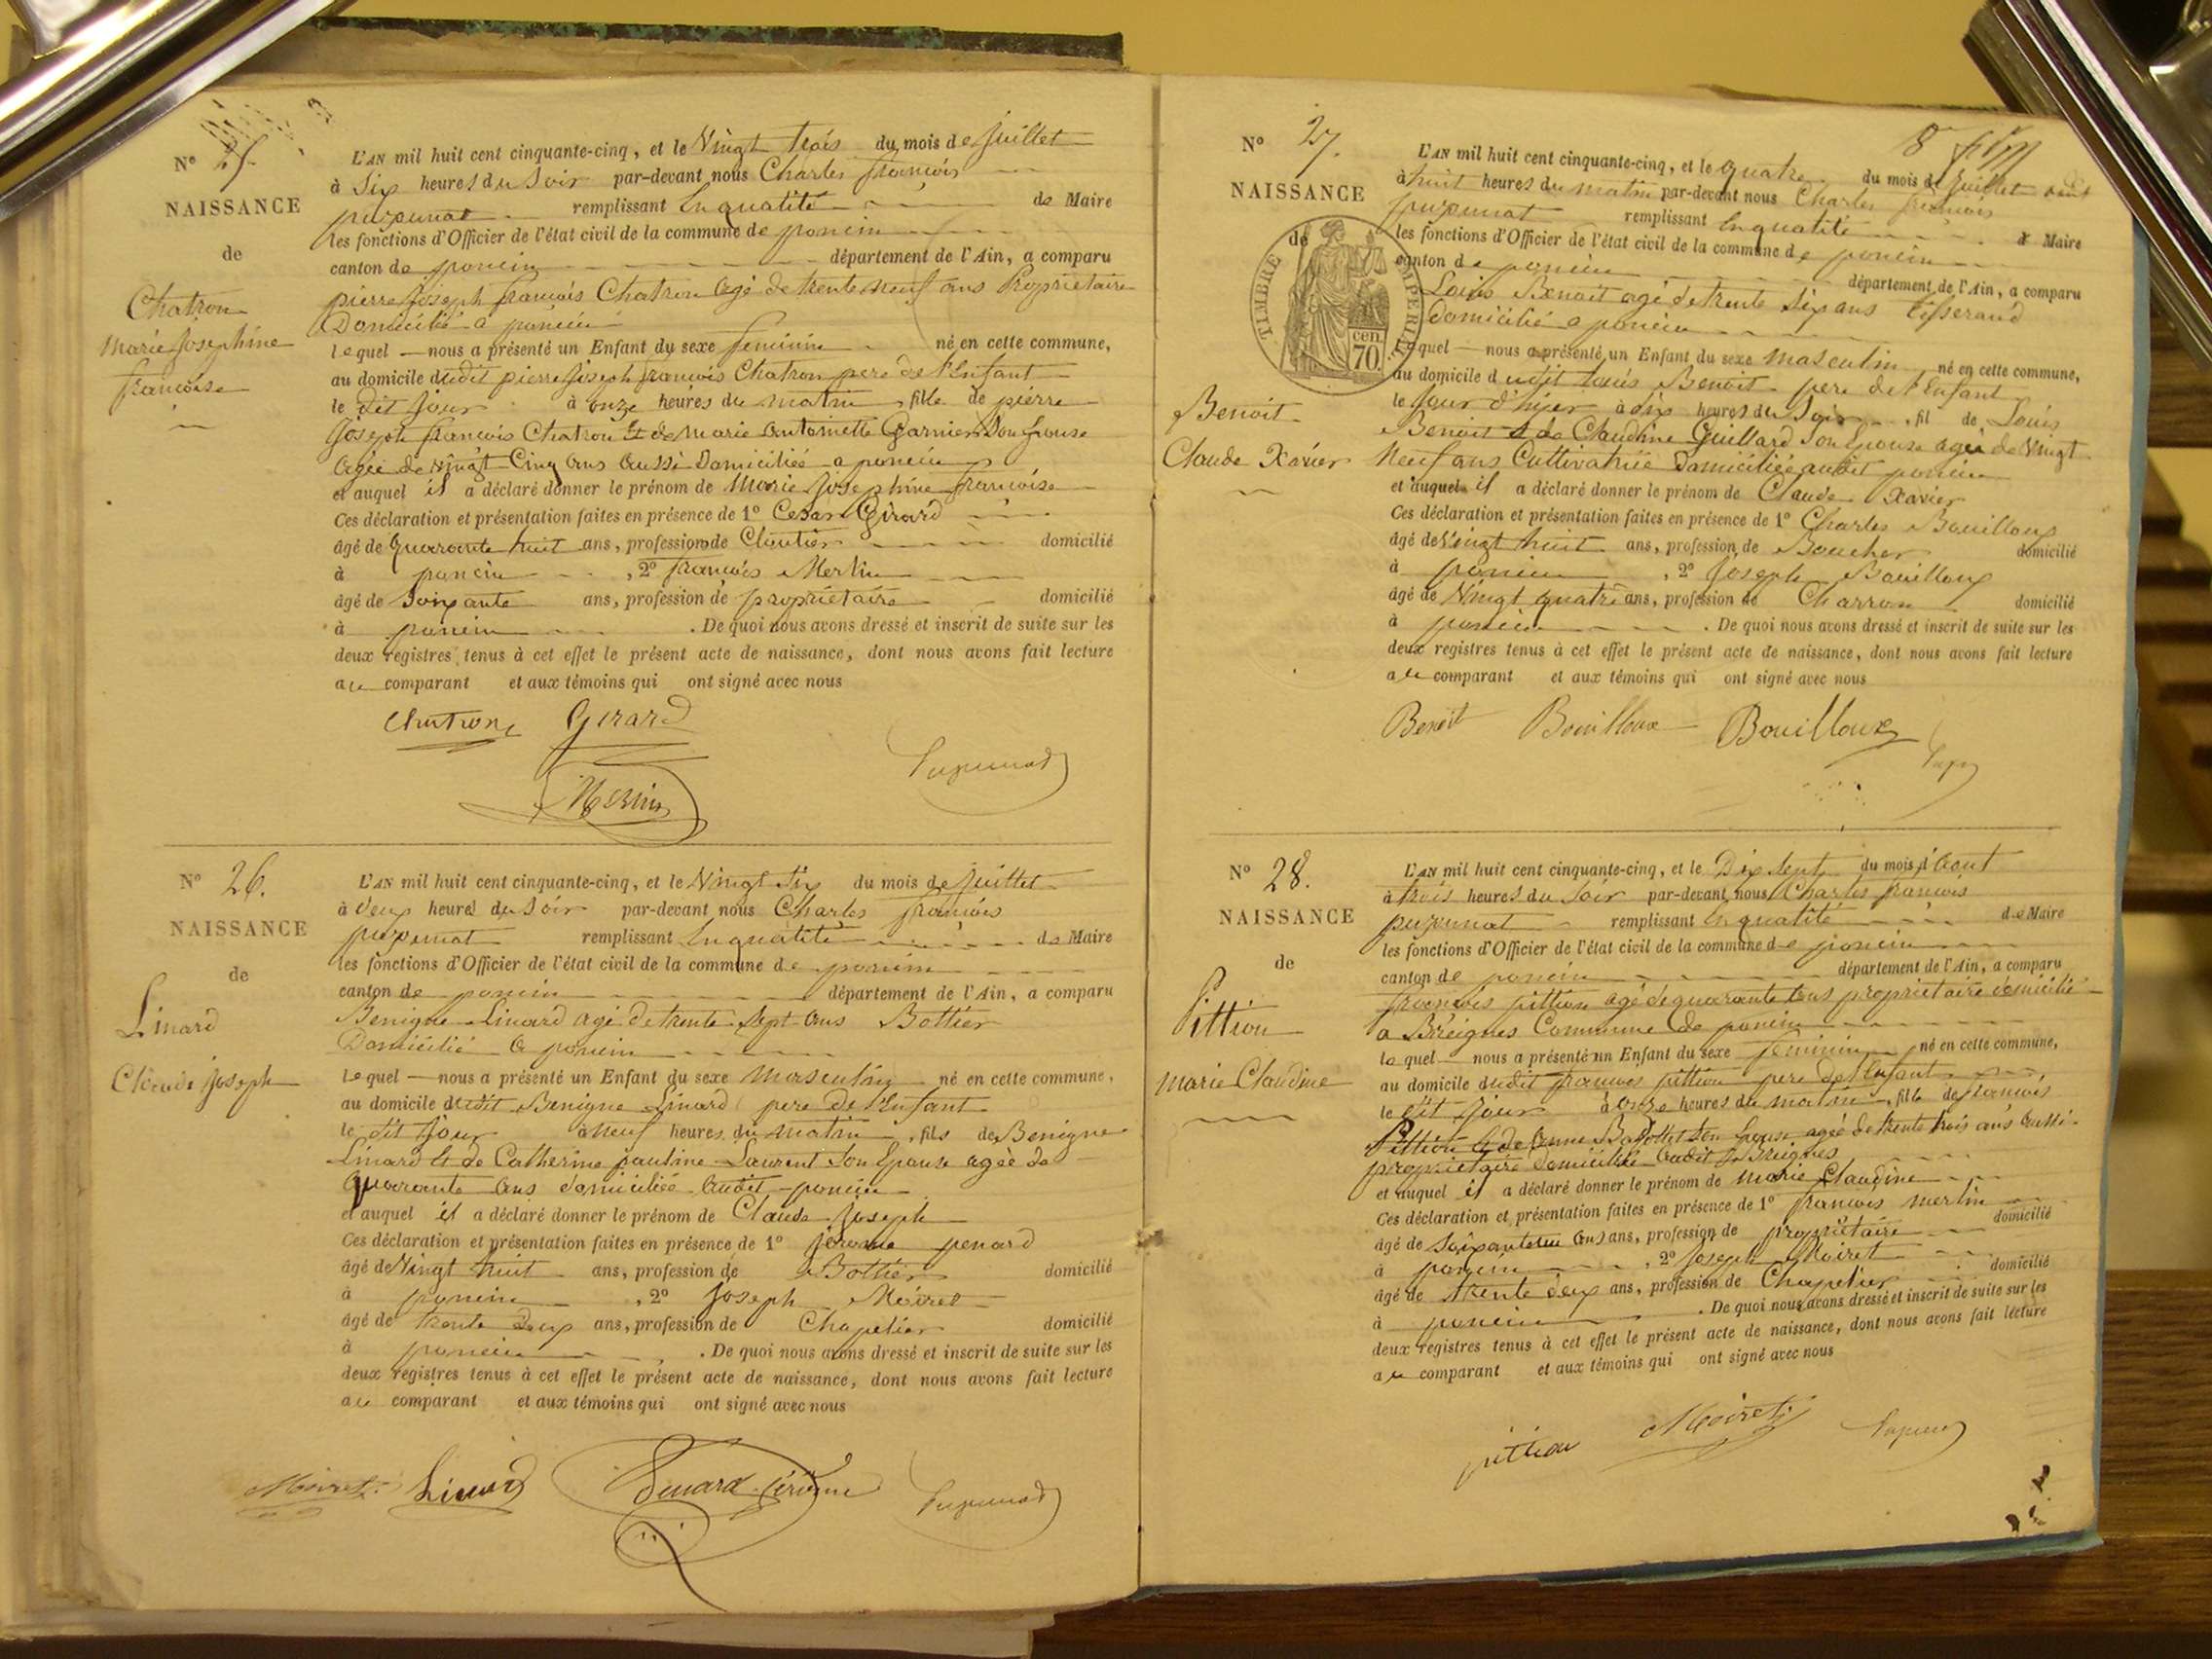 N° 25.
NAISSANCE
de
Chatron
marie Josephine
francoise
L'AN mil huit cent cinquante-cinq, et le Vingt trois du mois de juillet
à Six heures du Soir par-devant nous Charles francois
puzunat remplissant En qualité de Maire
les fonctions d'Officier de l'état civil de la commune de poncin
canton de poncin département de l'Ain, a comparu
pierre Joseph francois Chatron agé de trente neuf ans Propriétaire
Domicilié a poncin
lequel nous a présenté un Enfant du sexe feminin né en cette commune,
au domicile dudit pierre Joseph francois Chatron pere de l'Enfant
le dit jour à onze heures du matin, fille de pierre
Joseph francois Chatron Et de marie antoinette Garnier Son Epouse
agée de vingt Cinq ans aussi Domiciliée a poncin
et auquel il a déclaré donner le prénom de Marie Josephine francoise
Ces déclaration et présentation faites en présence de 1° Cesar Girard
âgé de quarante huit ans, profession de Cloutier domicilié
à poncin, 2° francois Merlin
âgé de Soixante ans, profession de propriétaire domicilié
à poncin. De quoi nous avons dressé et inscrit de suite sur les
deux registres tenus à cet effet le présent acte de naissance, dont nous avons fait lecture
au comparant et aux témoins qui ont signé avec nous
Chatron Girard
Merlin puzunat
N° 26.
NAISSANCE
de
Linard
Claude Joseph
L'AN mil huit cent cinquante-cinq, et le Vingt Six du mois de juillet
à deux heures du Soir par-devant nous Charles francois
puzunat remplissant En qualité de Maire
les fonctions d'Officier de l'état civil de la commune de poncin
canton de poncin département de l'Ain, a comparu
Benigne Linard agé de trente Sept ans Bottier
Domicilié a poncin
lequel nous a présenté un Enfant du sexe masculin né en cette commune,
au domicile dudit Benigne Linard pere de l'Enfant
le dit jour à neuf heures du matin, fils de Benigne
Linard Et de Catherine pauline Laurent Son Epouse agée de
quarante ans domiciliée audit poncin
et auquel il a déclaré donner le prénom de Claude Joseph
Ces déclaration et présentation faites en présence de 1° jérome penard
âgé de Vingt huit ans, profession de Bottier domicilié
à poncin, 2° Joseph Moiret
âgé de trente deux ans, profession de Chapelier domicilié
à poncin. De quoi nous avons dressé et inscrit de suite sur les
deux registres tenus à cet effet le présent acte de naissance, dont nous avons fait lecture
au comparant et aux témoins qui ont signé avec nous
Moiret Linard Penard Jérôme puzunat
8
N° 27.
NAISSANCE
de
TIMBRE IMPERIAL
cen. 70.
Benoit
Claude Xavier
L'AN mil huit cent cinquante-cinq, et le quatre du mois de juillet
à huit heures du matin par-devant nous Charles francois
puzunat remplissant En qualité de Maire
les fonctions d'Officier de l'état civil de la commune de poncin
canton de poncin département de l'Ain, a comparu
Louis Benoit agé de trente Six ans tisserand
domicilié a poncin
lequel nous a présenté un Enfant du sexe masculin né en cette commune,
au domicile dudit Louis Benoit pere de l'Enfant
le jour d'hier à dix heures du Soir, fil de Louis
Benoit & de Claudine Guillard Son Epouse agée de Vingt
Neuf ans Cultivatrice Domiciliée audit poncin
et auquel il a déclaré donner le prénom de Claude Xavier
Ces déclaration et présentation faites en présence de 1° Charles Bouilloux
âgé de Vingt huit ans, profession de Boucher domicilié
à poncin, 2° Joseph Bouilloux
âgé de Vingt quatre ans, profession de Charron domicilié
à poncin. De quoi nous avons dressé et inscrit de suite sur les
deux registres tenus à cet effet le présent acte de naissance, dont nous avons fait lecture
au comparant et aux témoins qui ont signé avec nous
Benoit Bouilloux Bouilloux
N° 28.
NAISSANCE
de
Pittion
marie Claudine
L'AN mil huit cent cinquante-cinq, et le Dix Sept du mois d'aout
à trois heures du Soir par-devant nous Charles francois
puzunat remplissant En qualité de Maire
les fonctions d'Officier de l'état civil de la commune de poncin
canton de poncin département de l'Ain, a comparu
francois pittion agé de quarante ans propriétaire domicilié
a Breignes Commune de poncin
lequel nous a présenté un Enfant du sexe feminin né en cette commune,
au domicile dudit francois pittion pere de l'Enfant
le dit jour à onze heures du matin, fille de francois
Pittion & de anne Son Epouse agée de trente trois ans aussi
propriétaire domiciliée audit Breignes
et auquel il a déclaré donner le prénom de marie Claudine
Ces déclaration et présentation faites en présence de 1° francois merlin
âgé de Soixante ans, profession de propriétaire domicilié
à poncin, 2° Joseph Moiret
âgé de trente deux ans, profession de Chapelier domicilié
à poncin. De quoi nous avons dressé et inscrit de suite sur les
deux registres tenus à cet effet le présent acte de naissance, dont nous avons fait lecture
au comparant et aux témoins qui ont signé avec nous
pittion Moiret